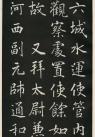 六城水運使管內
觀察處置使餘如
故又拜太尉兼
河西副元師通和